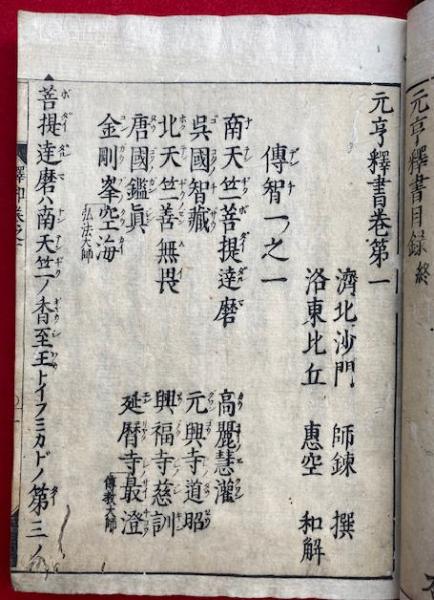 元亨釋書目録 終
元亨釋書卷第一
濟北沙門 師錬 撰
洛東比丘 惠空 和解
傳智一之一
南天竺菩提達磨 高麗慧灌
呉國智藏 元興寺道昭
北天竺善無畏 興福寺慈訓
唐國鑑眞 延暦寺最澄 傳教大師
金剛峯空海 弘法大師
菩提達磨ハ南天竺ノ香至王トイフミカドノ第三ノ